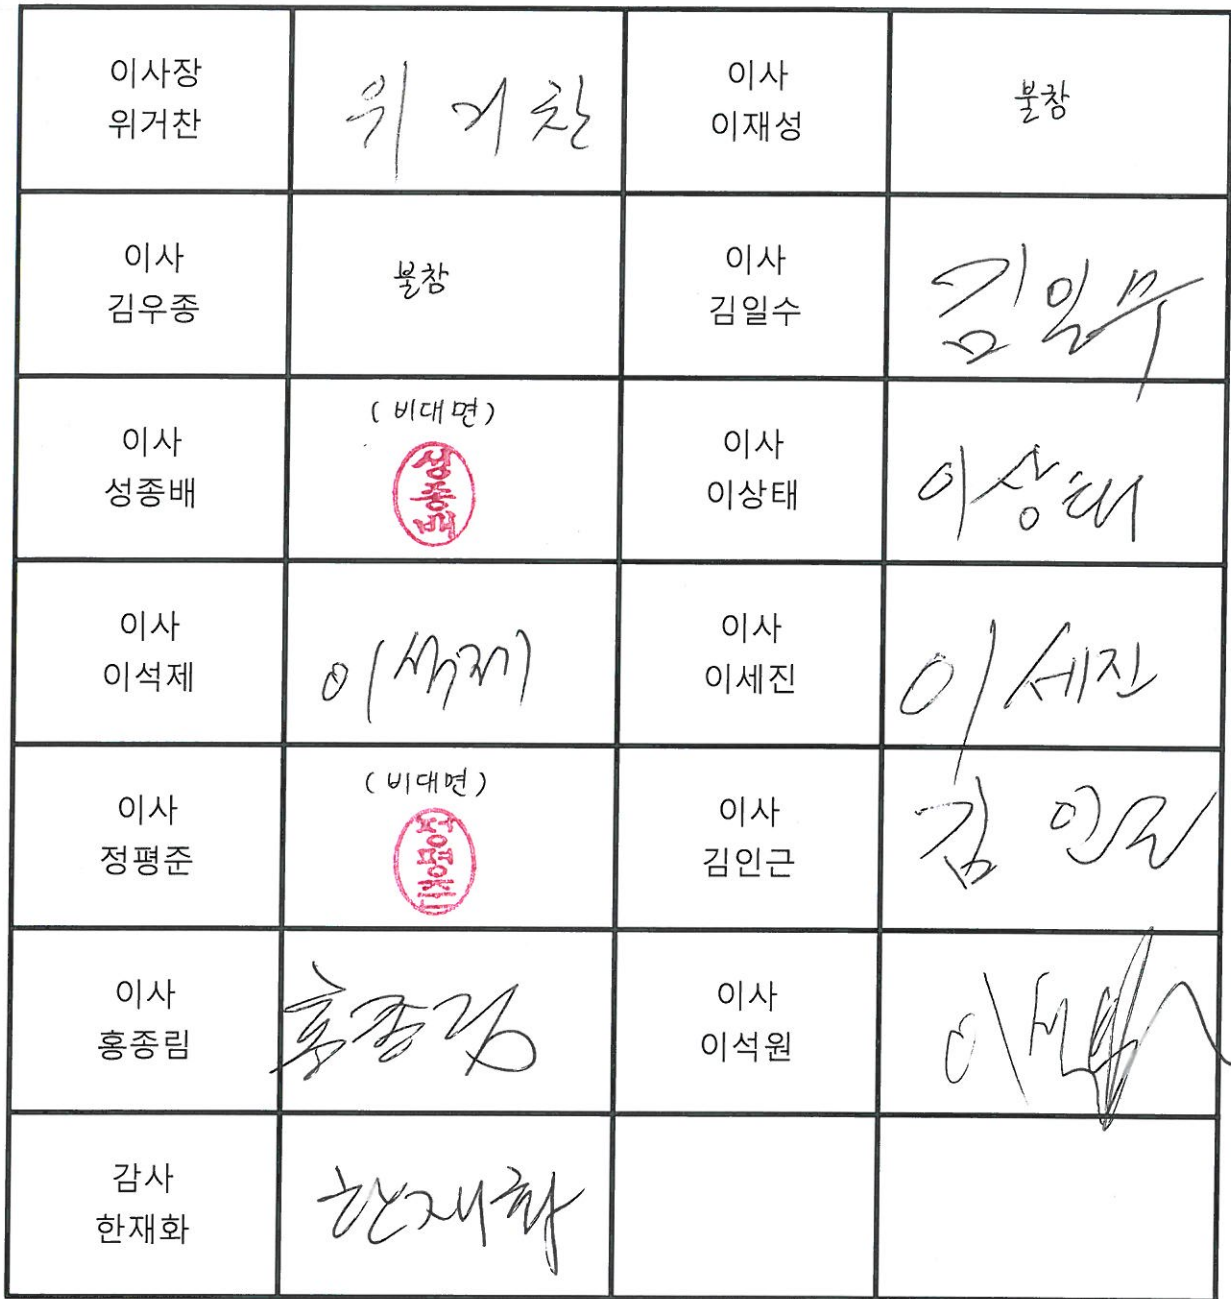 이사장
위거찬
위 거 찬
이사
이재성
불참
이사
김우종
불참
이사
김일수
김일수
이사
성종배
(비대면)
성종배
이사
이상태
이상태
이사
이석제
이석제
이사
이세진
이세진
이사
정평준
(비대면)
정평준
이사
김인근
김 인근
이사
홍종림
홍종림
이사
이석원
감사
한재화
한재화